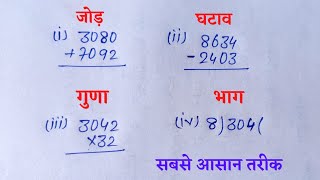 जोड़
(i) 3080
+7092
घटाव
(ii) 8634
-2403
गुणा
(iii) 3042
×32
भाग
(iv) 8)304(
सबसे आसान तरीक